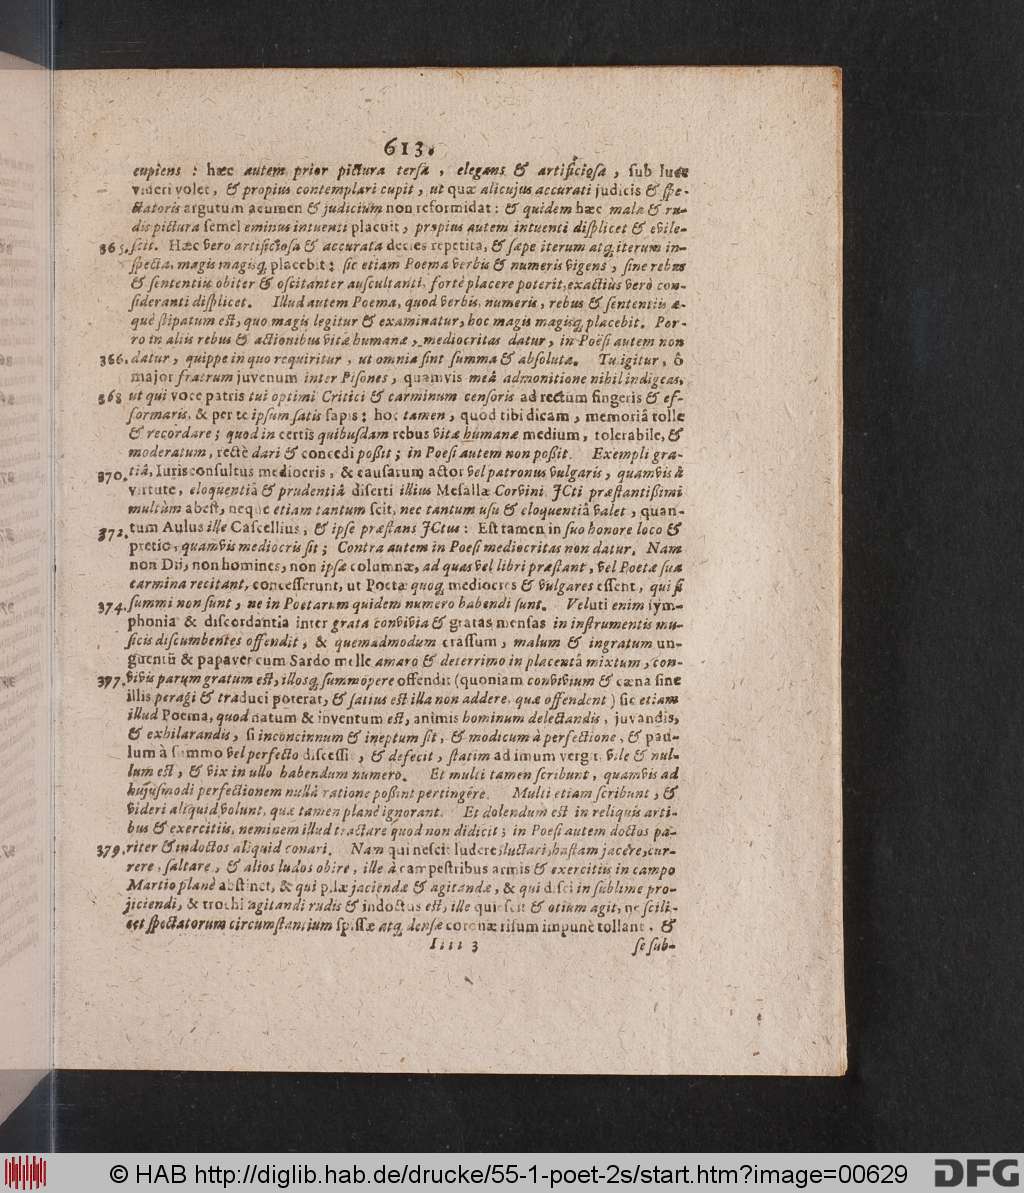 613.
cupiens : hæc autem prior pictura tersa, elegans & artificiosa, sub luce
videri volet, & propius contemplari cupit, ut quæ alicujus accurati judicis & spe-
ctatoris argutum acumen & judicium non reformidat: & quidem hæc mala & ru-
dis pictura semel eminus intuenti placuit, propius autem intuenti displicet & evile-
365. scit. Hæc vero artificiosa & accurata decies repetita, & sæpe iterum atq; iterum in-
specta, magis magisq; placebit: sic etiam Poema verbis & numeris vigens, sine rebus
& sententiis obiter & oscitanter auscultanti, fortè placere poterit, exactius verò con-
sideranti displicet. Illud autem Poema, quod verbis, numeris, rebus & sententiis æ-
què stipatum est, quo magis legitur & examinatur, hoc magis magisq; placebit. Por-
ro in aliis rebus & actionibus vitæ humanæ, mediocritas datur, in Poësi autem non
366. datur, quippe in quo requiritur, ut omnia sint summa & absoluta. Tu igitur, ô
major fratrum juvenum inter Pisones, quamvis meâ admonitione nihil indigeas,
368 ut qui voce patris tui optimi Critici & carminum censoris ad rectum fingeris & ef-
formaris, & per te ipsum satis sapis: hoc tamen, quod tibi dicam, memoriâ tolle
& recordare; quod in certis quibusdam rebus vitæ humanæ medium, tolerabile, &
moderatum, rectè dari & concedi possit; in Poesi autem non possit. Exempli gra-
370. tiâ, Jurisconsultus mediocris, & causarum actor vel patronus vulgaris, quamvis à
virtute, eloquentiâ & prudentiâ diserti illius Mesallæ Corvini, JCti præstantissimi
multùm abest, neque etiam tantum scit, nec tantum usu & eloquentiâ valet, quan-
372. tum Aulus ille Cascellius, & ipse præstans JCtus: Est tamen in suo honore loco &
pretio, quamvis mediocris sit; Contra autem in Poesi mediocritas non datur. Nam
non Dii, non homines, non ipsæ columnæ, ad quas vel libri præstant, vel Poetæ sua
carmina recitant, concesserunt, ut Poetæ quoq; mediocres & vulgares essent, qui si
374. summi non sunt, ne in Poetarum quidem numero habendi sunt. Veluti enim sym-
phonia & discordantia inter grata convivia & gratas mensas in instrumentis mu-
sicis discumbentes offendit, & quemadmodum crassum, malum & ingratum un-
guentū & papaver cum Sardo melle amaro & deterrimo in placentâ mixtum, con-
377. vivis parum gratum est, illosq; summopere offendit (quoniam convivium & cæna sine
illis peragi & traduci poterat, & satius est illa non addere, quæ offendent) sic etiam
illud Poema, quod natum & inventum est, animis hominum delectandis, juvandis,
& exhilarandis, si inconcinnum & ineptum sit, & modicum à perfectione, & pau-
lum à summo vel perfecto discessit, & defecit, statim ad imum vergit, vile & nul-
lum est, & vix in ullo habendum numero. Et multi tamen scribunt, quamvis ad
hujusmodi perfectionem nullâ ratione possint pertingere. Multi etiam scribunt, &
videri aliquid volunt, quæ tamen planè ignorant. Et dolendum est in reliquis arti-
bus & exercitiis, neminem illud tractare quod non didicit; in Poesi autem doctos pa-
379. riter & indoctos aliquid conari. Nam qui nescit ludere, luctari, hastam jacere, cur-
rere, saltare, & alios ludos obire, ille à campestribus armis & exercitiis in campo
Martio planè abstinet, & qui pilæ jaciendæ & agitandæ, & qui disci in sublime pro-
jiciendi, & trochi agitandi rudis & indoctus est, ille quiescit & otium agit, ne scili-
cet spectatorum circumstantium spissæ atq; densæ coronæ risum impunè tollant, &
Iiii 3
se sub-
© HAB http://diglib.hab.de/drucke/55-1-poet-2s/start.htm?image=00629
DFG